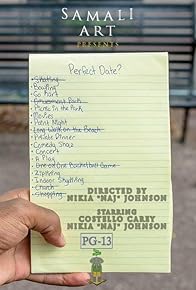 SAMALI
ART
PRESENTS
Perfect Date?
Skating
Bowling
Go Kart
Amusement Park
Picnic in the Park
Movies
Paint Night
Long Walk on the Beach
Private Dinner
Comedy Show
Concert
A Play
One on One Basketball Game
Ziplining
Indoor Skydiving
Church
Shopping
DIRECTED BY
NIKIA "NAJ" JOHNSON
STARRING
COSTELLO CAREY
NIKIA "NAJ" JOHNSON
PG-13